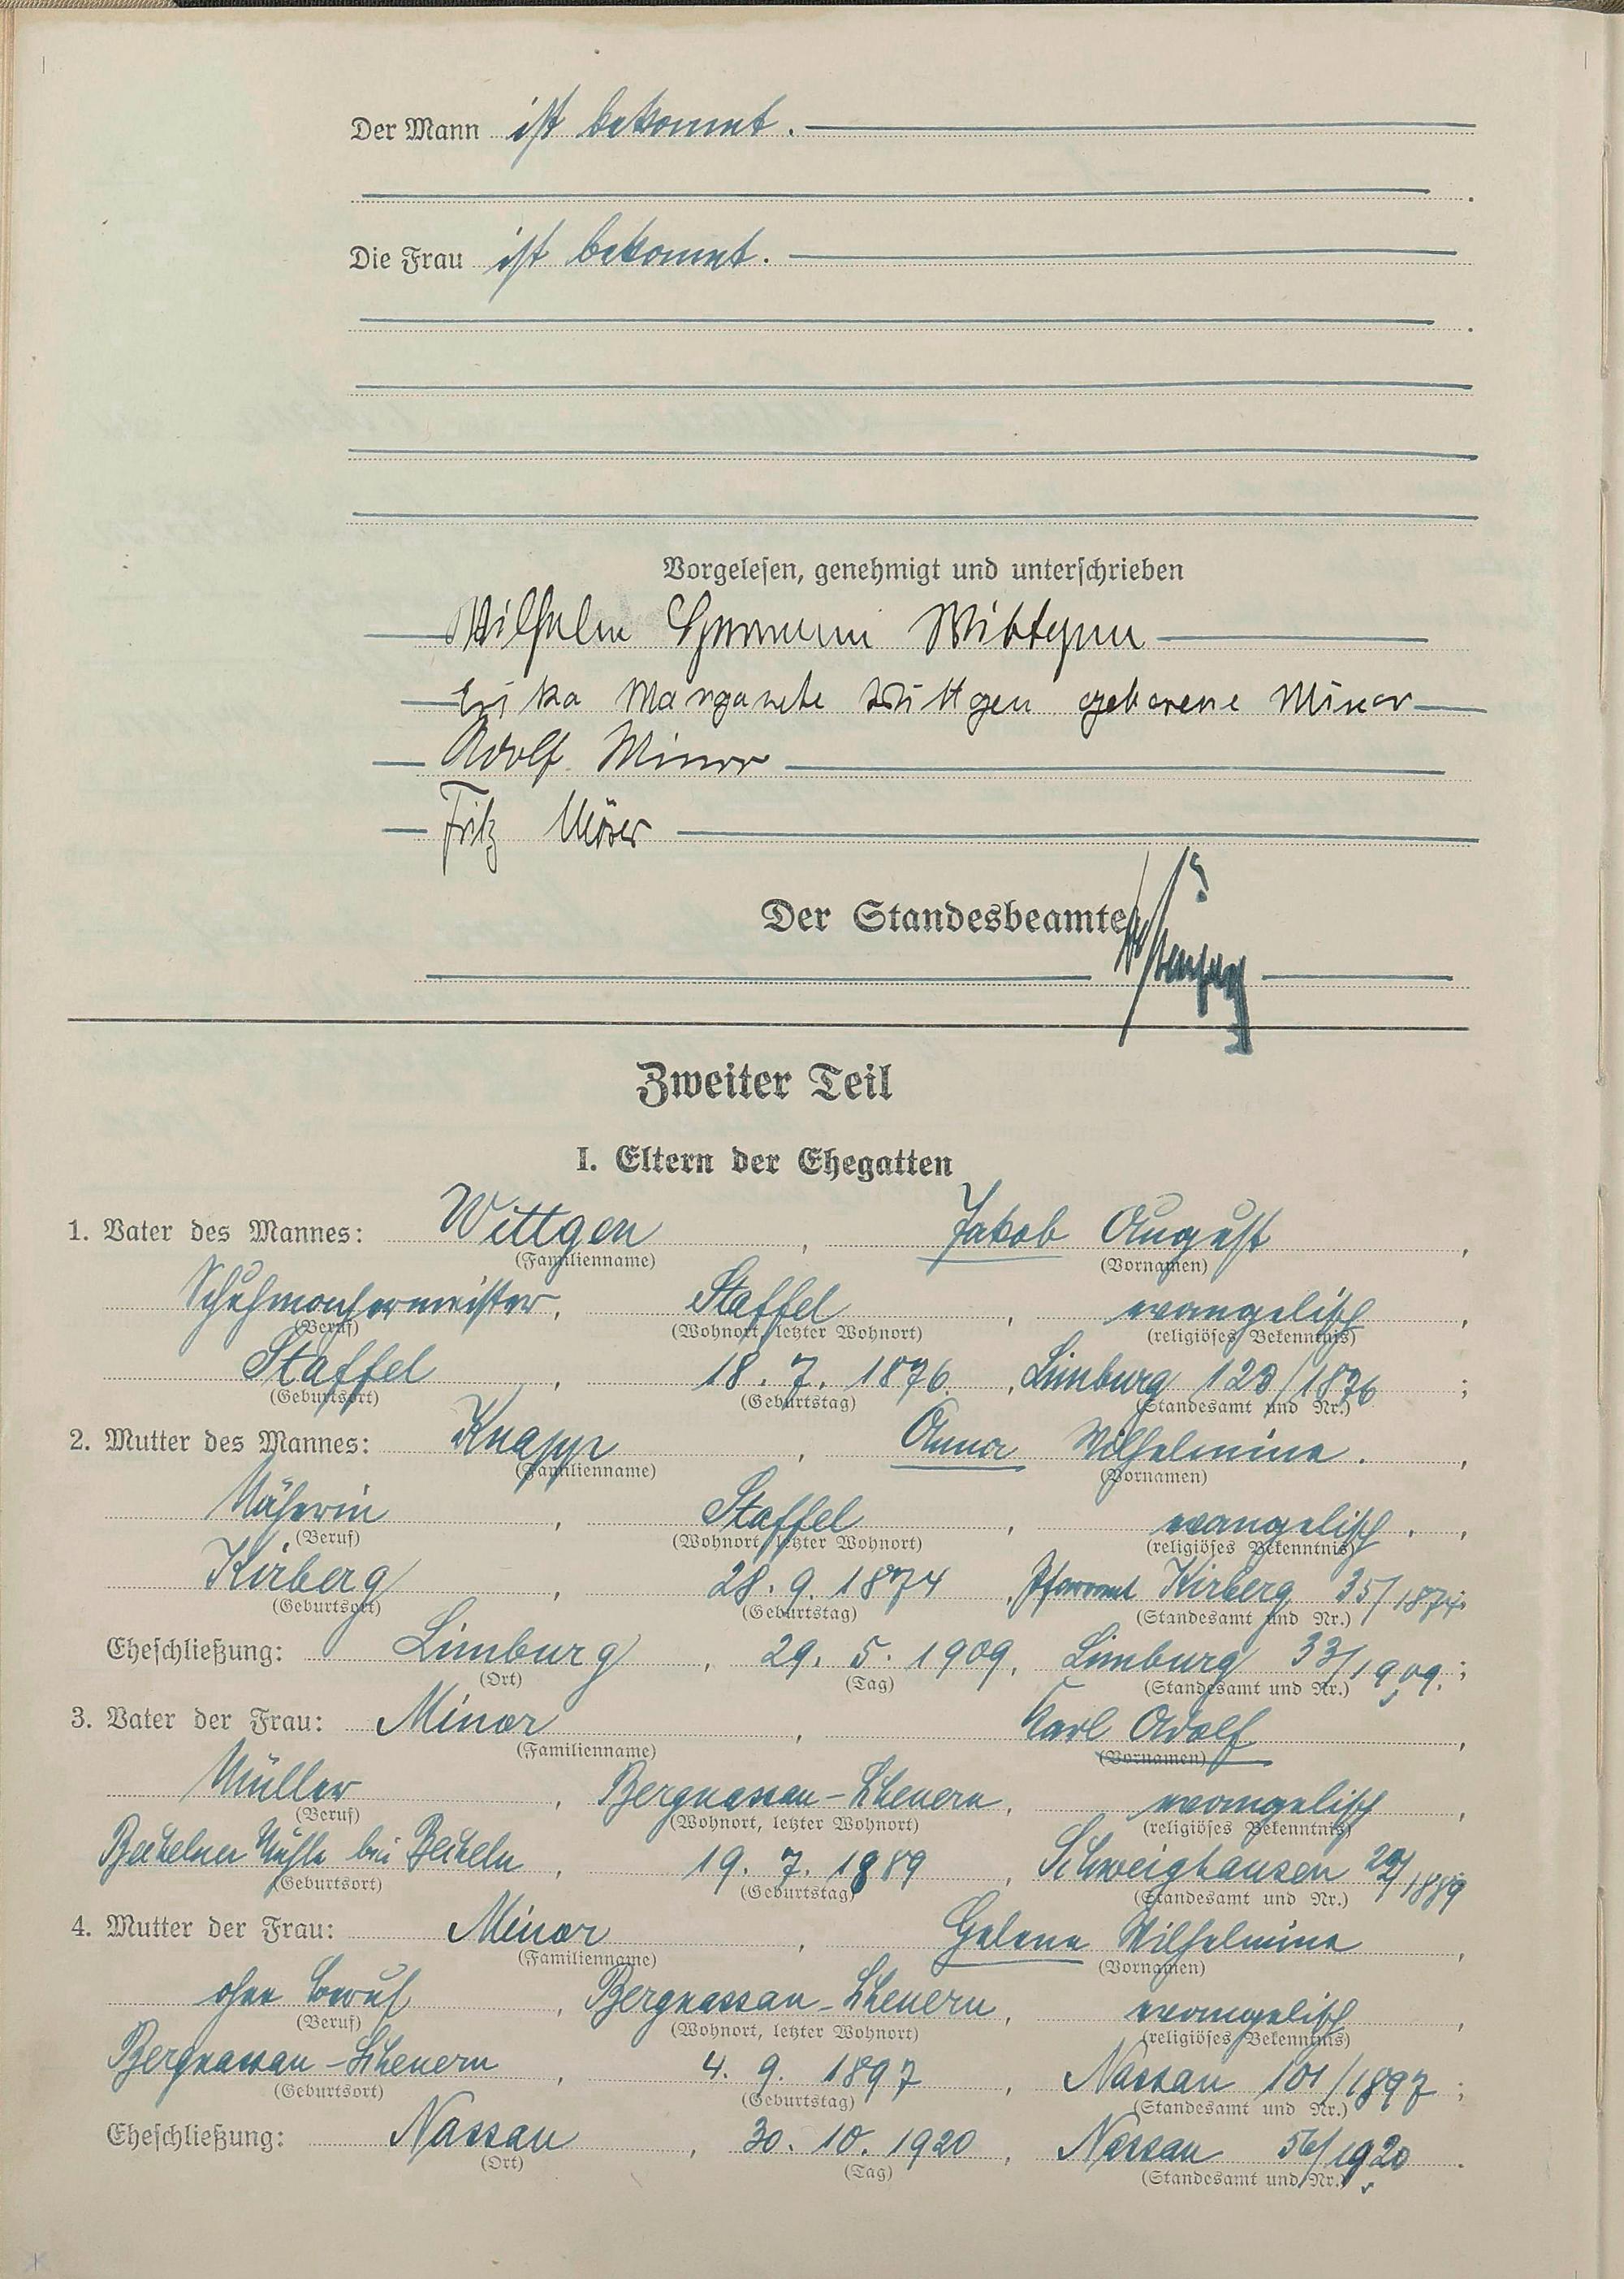 Der Mann ist bekannt.
Die Frau ist bekannt.
Vorgelesen, genehmigt und unterschrieben
Wilhelm Hermann Wittgen
Erika Margarete Wittgen geborene Minor
Adolf Minor
Fritz Möser
Der Standesbeamte
Zweiter Teil
I. Eltern der Ehegatten
1. Vater des Mannes: Wittgen, Jakob August,
(Familienname) (Vornamen)
Schuhmachermeister, Staffel, evangelisch,
(Beruf) (Wohnort, letzter Wohnort) (religiöses Bekenntnis)
Staffel, 18. 7. 1876, Limburg 123/1876;
(Geburtsort) (Geburtstag) (Standesamt und Nr.)
2. Mutter des Mannes: Knapp, Anna Wilhelmine.,
(Familienname) (Vornamen)
Näherin, Staffel, evangelisch.,
(Beruf) (Wohnort, letzter Wohnort) (religiöses Bekenntnis)
Kirberg, 28. 9. 1874, Pfarramt Kirberg 35/1874;
(Geburtsort) (Geburtstag) (Standesamt und Nr.)
Eheschließung: Limburg, 29. 5. 1909, Limburg 33/1909.;
(Ort) (Tag) (Standesamt und Nr.)
3. Vater der Frau: Minor, Karl Adolf,
(Familienname) (Vornamen)
Müller, Bergnassau-Scheuern, evangelisch,
(Beruf) (Wohnort, letzter Wohnort) (religiöses Bekenntnis)
Bechelner Mühle bei Becheln, 19. 7. 1889, Schweighausen /1889
(Geburtsort) (Geburtstag) (Standesamt und Nr.)
4. Mutter der Frau: Minor, Helene Wilhelmine,
(Familienname) (Vornamen)
ohne Beruf, Bergnassau-Scheuern, evangelisch,
(Beruf) (Wohnort, letzter Wohnort) (religiöses Bekenntnis)
Bergnassau-Scheuern, 4. 9. 1897, Nassau 101/1897;
(Geburtsort) (Geburtstag) (Standesamt und Nr.)
Eheschließung: Nassau, 30. 10. 1920, Nassau 56/1920.
(Ort) (Tag) (Standesamt und Nr.)